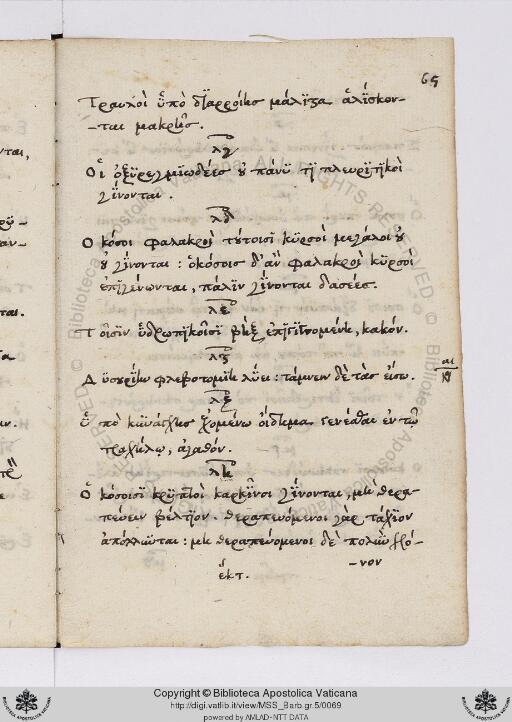 65
Τραυλοὶ ὑπὸ διαρροίης μάλιστα ἁλίσκον-
-ται μακρῆς.
λγ
Οἱ ὀξυρεγμιώδεες οὐ πάνυ τι πλευριτικοὶ
γίνονται.
λδ
Ὁκόσοι φαλακροὶ τούτοισι κιρσοὶ μεγάλοι οὐ
οὐ γίνονται: ὁκόσοις δ' ἂν φαλακροὶ κιρσοὶ
ἐπιγένωνται, πάλιν γίνονται δασέες.
λε
Τοῖσιν ὑδρωπικοῖσι βὴξ ἐπιγινομένη, κακόν.
λς
Δυσουρίην φλεβοτομίη λύει: τάμνειν δὲ τὰς εἴσω.
λζ
Ὑπὸ κυνάγχης ἐχομένω οἴδημα γενέσθαι ἐν τῷ
τραχήλῳ, ἀγαθόν.
λη
Ὁκόσοισι κρυπτοὶ καρκίνοι γίνονται, μὴ θερα-
πεύειν βέλτιον. θεραπευόμενοι γὰρ τάχιον
ἀπόλλυνται: μὴ θεραπευόμενοι δὲ πολὺν χρό-
-νον
ται,
ται.
Copyright © Biblioteca Apostolica Vaticana
http://digi.vatlib.it/view/MSS_Barb.gr.5/0069
powered by AMLAD-NTT DATA